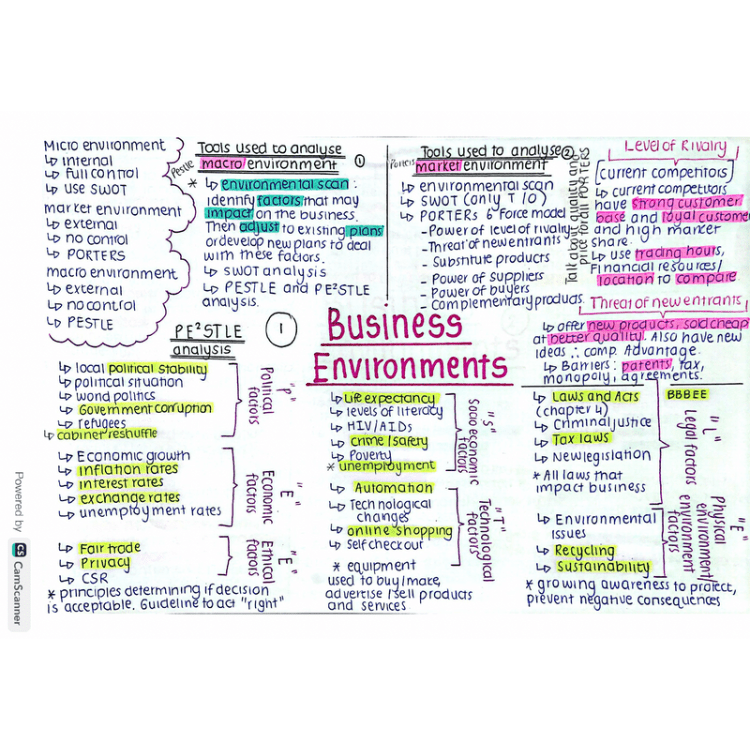 Micro environment
↳ internal
↳ full control
↳ use SWOT
market environment
↳ external
↳ no control
↳ PORTERS
macro environment
↳ external
↳ no control
↳ PESTLE
Pestle
Tools used to analyse
macro environment ①
* ↳ environmental scan :
identify factors that may
impact on the business.
Then adjust to existing plans
or develop new plans to deal
with these factors.
↳ SWOT analysis
↳ PESTLE and PE²STLE
analysis.
Porters
Tools used to analyse ②
market environment
↳ environmental scan
↳ SWOT (only T/O)
↳ PORTERs 6 Force model
- Power of level of rivalry
- Threat of new entrants
- Substitute products
- Power of suppliers
- Power of buyers
- Complementary products.
Talk about quality and
price for all PORTERS
Level of Rivalry
(current competitors)
↳ current competitors
have strong customer
base and loyal customer
and high market
share.
↳ use trading hours,
Financial resources/
location to compete
Threat of new entrants
↳ offer new products, sold cheap
at better quality. Also have new
ideas ∴ comp. Advantage.
↳ Barriers : patents, tax,
monopoly, agreements.
Business
Environments
PE²STLE ①
analysis
↳ local political stability
↳ political situation
↳ world politics
↳ Government corruption
↳ refugees
↳ cabinet reshuffle
"P"
Political
factors
↳ Economic growth
↳ inflation rates
↳ interest rates
↳ exchange rates
↳ unemployment rates
"E"
Economic
factors
↳ Fair trade
↳ Privacy
↳ CSR
"E"
Ethical
factors
* principles determining if decision
is acceptable. Guideline to act "right"
↳ Life expectancy
↳ levels of literacy
↳ HIV/AIDs
↳ crime/safety
↳ Poverty
* unemployment
"S"
Socio economic
factors
↳ Automation
↳ Technological
changes
↳ online shopping
↳ Self checkout
"T"
Technological
factors
* equipment
used to buy/make,
advertise/sell products
and services
↳ Laws and Acts
(chapter 4)
↳ Criminal justice
↳ Tax laws
↳ New legislation
* All laws that
impact business
BBBEE
"L"
Legal factors
↳ Environmental
issues
↳ Recycling
↳ Sustainability
"E"
Physical
environment/
environment
factors
* growing awareness to protect,
prevent negative consequences
Powered by CS CamScanner